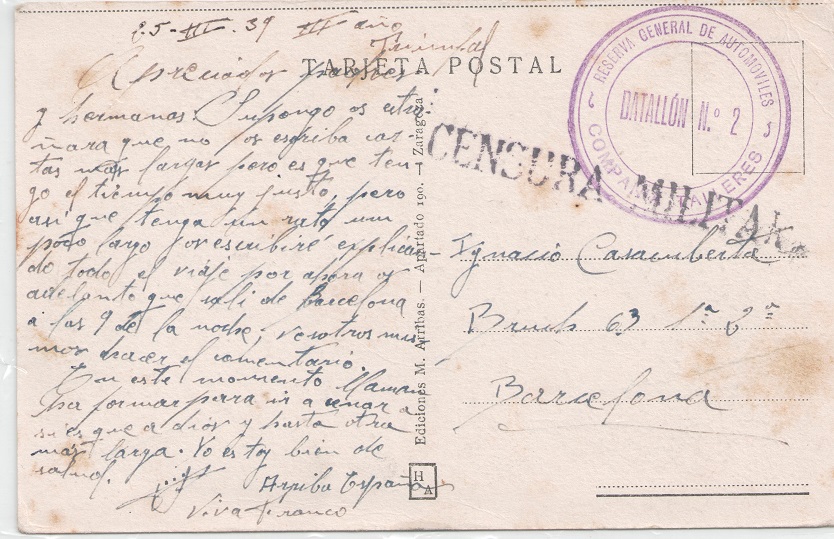 25-III-39 III año
Triunfal
TARJETA POSTAL
Apreciados padres
y hermanas: Supongo os estra
ñara que no os escriba car-
tas mas largas pero es que ten-
go el tiempo muy justo, pero
asi que tenga un rato un
poco largo os escribiré explican-
do todo el viaje por ahora os
adelanto que sali de Barcelona
a las 9 de la noche, vosotros mis-
mos hacer el comentario.
En este momento llaman
ha formar para ir a cenar a
si es que adios y hasta otra
mas larga. Yo estoy bien de
salud.
Arriba España
Viva Franco
Ediciones M. Arribas. — Apartado 190. — Zaragoza
HA
RESERVA GENERAL DE AUTOMOVILES
BATALLÓN N.º 2
COMPAÑIA TALLERES
CENSURA MILITAR.
Ignacio Casacuberta
Bruch 63 1ª 2ª
Barcelona